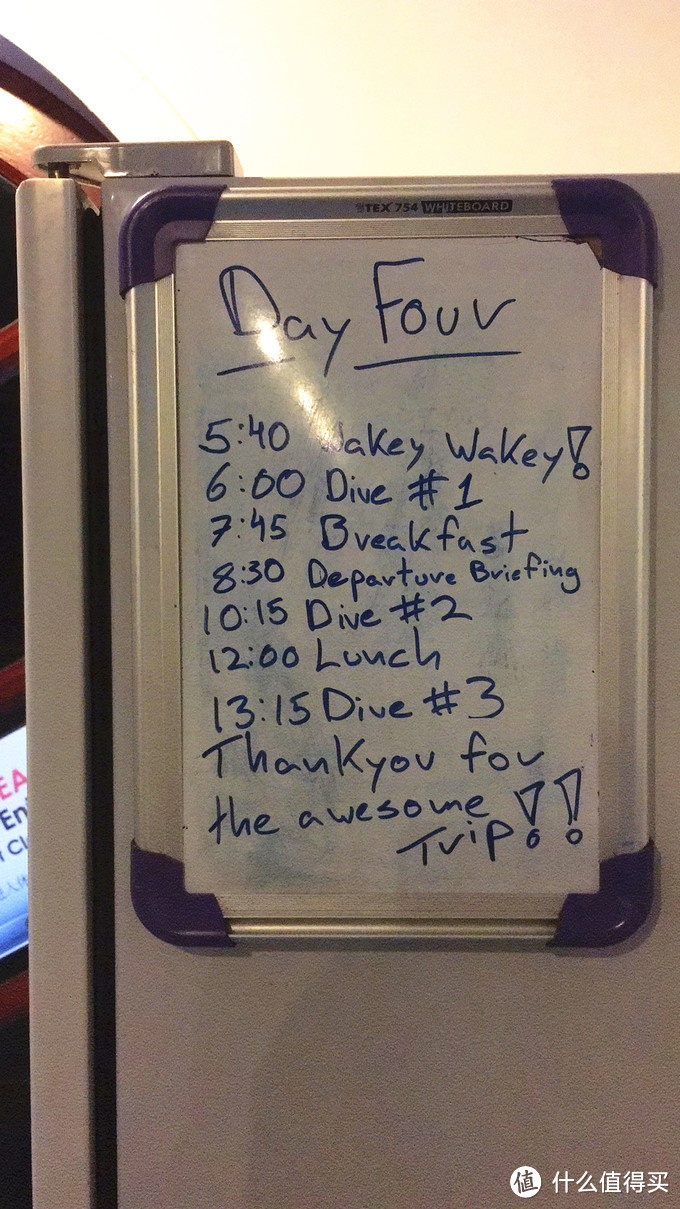 TEX 754 WHITEBOARD
Day Four
5:40 Wakey Wakey!
6:00 Dive #1
7:45 Breakfast
8:30 Departure Briefing
10:15 Dive #2
12:00 Lunch
13:15 Dive #3
Thankyou for
the awesome
Trip!!
EA
En
值 什么值得买